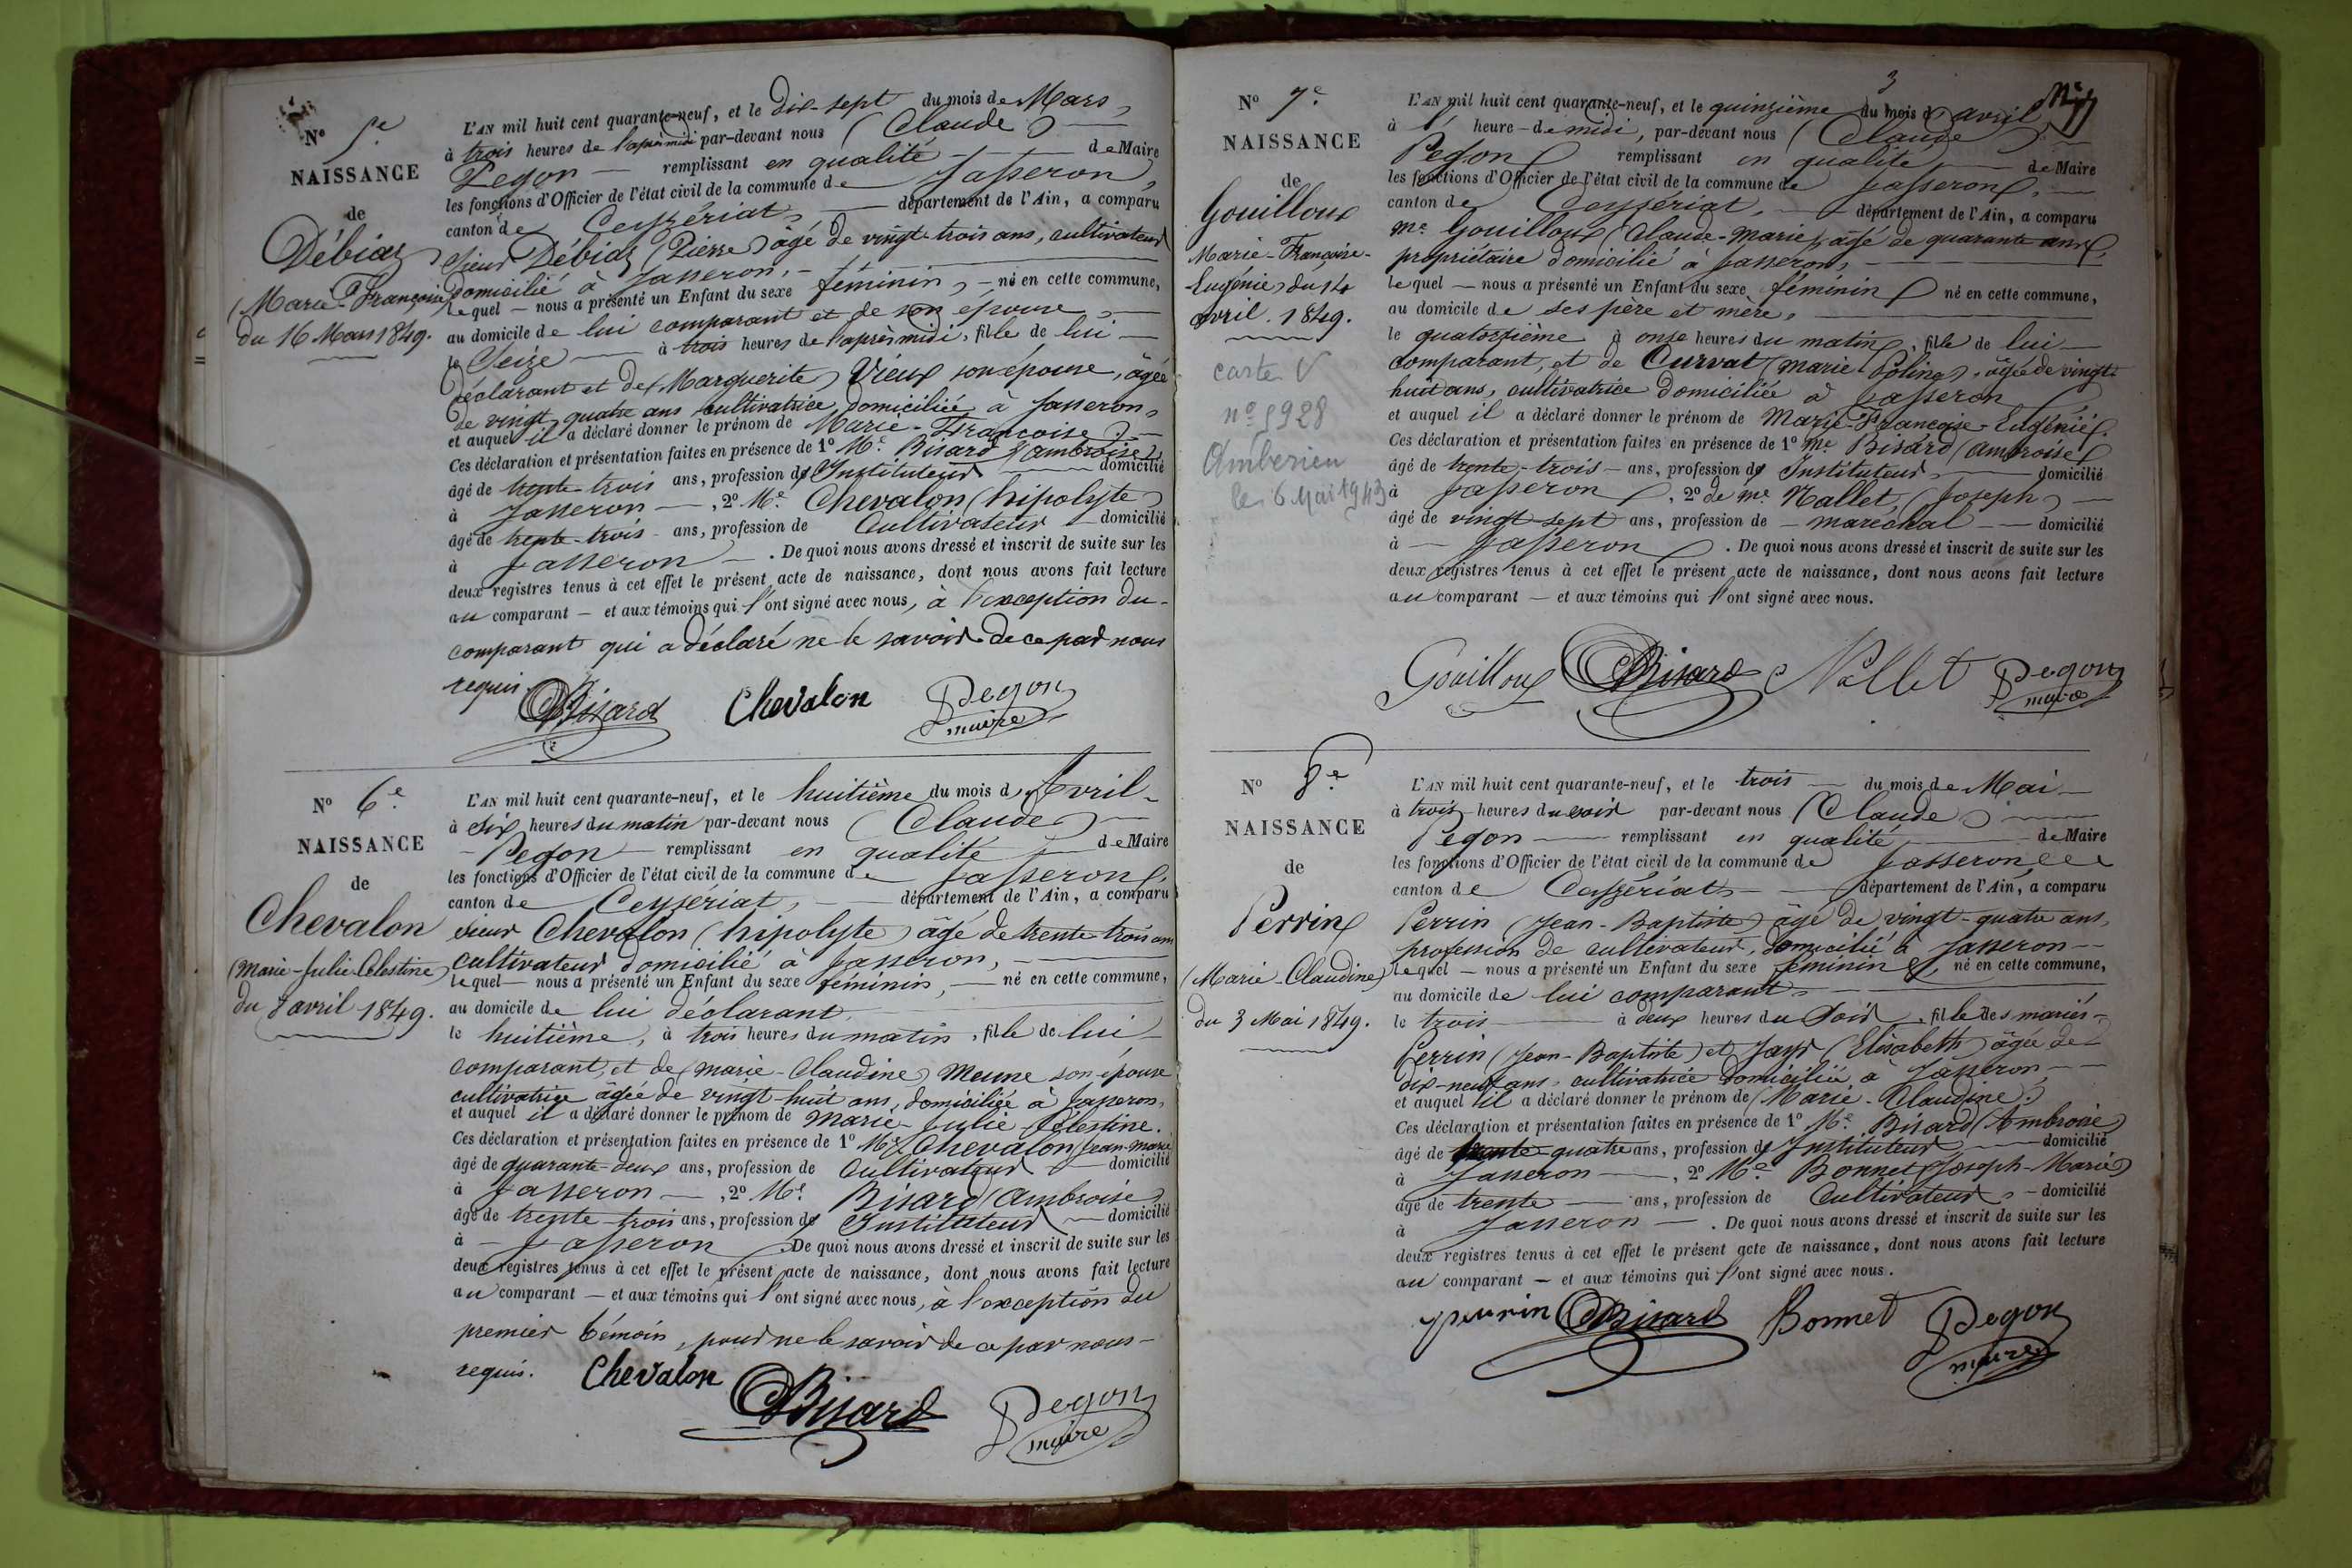 N° 5e
NAISSANCE
de
Débiaz
(Marie-Françoise)
du 16 Mars 1849.
L'AN mil huit cent quarante-neuf, et le dix-sept du mois de Mars,
à trois heures de l'après midi par-devant nous (Claude)
Pegon remplissant en qualité de Maire
les fonctions d'Officier de l'état civil de la commune de Jasseron,
canton de Ceyzériat, département de l'Ain, a comparu
Sieur Débiaz (Pierre) âgé de vingt-trois ans, cultivateur
domicilié à Jasseron,
lequel nous a présenté un Enfant du sexe féminin, né en cette commune,
au domicile de lui comparant et de son épouse
le Seize à trois heures de l'après midi, fille de lui
déclarant et de (Marguerite) Vieux son épouse, âgée
de vingt quatre ans cultivatrice domiciliée à Jasseron,
et auquel il a déclaré donner le prénom de Marie-Françoise
Ces déclaration et présentation faites en présence de 1° Me. Bisard (ambroise)
âgé de trente-trois ans, profession d' Instituteur domicilié
à Jasseron, 2° Me. Chevalon (hipolyte)
âgé de trente-trois ans, profession de Cultivateur domicilié
à Jasseron. De quoi nous avons dressé et inscrit de suite sur les
deux registres tenus à cet effet le présent acte de naissance, dont nous avons fait lecture
au comparant et aux témoins qui l'ont signé avec nous, à l'exception du
comparant qui a déclaré ne le savoir de ce par nous
requis.
Bisard Chevalon Pegon
maire
N° 6e.
NAISSANCE
de
Chevalon
(Marie-Julie-Célestine)
du 8 avril 1849.
L'AN mil huit cent quarante-neuf, et le huitième du mois d'Avril
à Six heures du matin par-devant nous (Claude)
Pegon remplissant en qualité de Maire
les fonctions d'Officier de l'état civil de la commune de Jasseron,
canton de Ceyzériat, département de l'Ain, a comparu
sieur Chevalon (hipolyte) âgé de trente trois ans
cultivateur domicilié à Jasseron,
lequel nous a présenté un Enfant du sexe féminin, né en cette commune,
au domicile de lui déclarant
le huitième, à trois heures du matin, fille de lui
comparant, et de (marie-Claudine) Meune son épouse
cultivatrice âgée de vingt-huit ans, domiciliée à Jasseron,
et auquel il a déclaré donner le prénom de Marie-Julie Célestine.
Ces déclaration et présentation faites en présence de 1° Me Chevalon (jean-marie
âgé de quarante-deux ans, profession de Cultivateur domicilié
à Jasseron, 2° Me. Bisard (ambroise)
âgé de trente-trois ans, profession d' Instituteur domicilié
à Jasseron. De quoi nous avons dressé et inscrit de suite sur les
deux registres tenus à cet effet le présent acte de naissance, dont nous avons fait lecture
au comparant et aux témoins qui l'ont signé avec nous, à l'exception du
premier témoin, pour ne le savoir de ce par nous
requis. Chevalon
Bisard Pegon
maire
3
N° 7e
NAISSANCE
de
Gouilloux
Marie-Françoise-
Eugénie, du 14
avril. 1849.
carte V
n° 5928
Amberieu
le 6 Mai 1943
L'AN mil huit cent quarante-neuf, et le quinzième du mois d'avril
à l' heure de midi, par-devant nous (Claude)
Pegon remplissant en qualité de Maire
les fonctions d'Officier de l'état civil de la commune de Jasseron,
canton de Ceyzériat, département de l'Ain, a comparu
me. Gouilloux (Claude-marie) âgé de quarante ans
propriétaire domicilié à Jasseron,
lequel nous a présenté un Enfant du sexe féminin né en cette commune,
au domicile de ses père et mère,
le quatorzième à onze heures du matin, fille de lui
comparant, et de Curvat (marie Poline), âgée de vingt
huit ans, cultivatrice domiciliée à Jasseron
et auquel il a déclaré donner le prénom de Marie-Françoise-Eugénie.
Ces déclaration et présentation faites en présence de 1° me Bisard (ambroise)
âgé de trente-trois ans, profession d' Instituteur domicilié
à Jasseron, 2° de me Nallet, (Joseph)
âgé de vingt-sept ans, profession de maréchal domicilié
à Jasseron. De quoi nous avons dressé et inscrit de suite sur les
deux registres tenus à cet effet le présent acte de naissance, dont nous avons fait lecture
au comparant et aux témoins qui l'ont signé avec nous.
Gouilloux Bisard Nallet Pegon
maire
N° 8e
NAISSANCE
de
Perrin
(Marie-Claudine)
du 3 Mai 1849.
L'AN mil huit cent quarante-neuf, et le trois du mois de Mai
à trois heures du soir par-devant nous (Claude)
Pegon remplissant en qualité de Maire
les fonctions d'Officier de l'état civil de la commune de Jasseron
canton de Ceyzériat département de l'Ain, a comparu
Perrin (Jean-Baptiste) âgé de vingt-quatre ans,
profession de cultivateur, domicilié à Jasseron
lequel nous a présenté un Enfant du sexe féminin, né en cette commune,
au domicile de lui comparant
le trois à deux heures du Soir, fille des mariés
Perrin (Jean-Baptiste) et Jayr (Elisabeth) âgée de
dix-neuf ans, cultivatrice domiciliée à Jasseron
et auquel il a déclaré donner le prénom de (Marie-Claudine).
Ces déclaration et présentation faites en présence de 1° Me. Bisard (Ambroise)
âgé de trente-quatre ans, profession d' Instituteur domicilié
à Jasseron, 2° Me. Bonnet (Joseph-Marie)
âgé de trente ans, profession de Cultivateur, domicilié
à Jasseron. De quoi nous avons dressé et inscrit de suite sur les
deux registres tenus à cet effet le présent acte de naissance, dont nous avons fait lecture
au comparant et aux témoins qui l'ont signé avec nous.
perrin Bisard Bonnet Pegon
maire